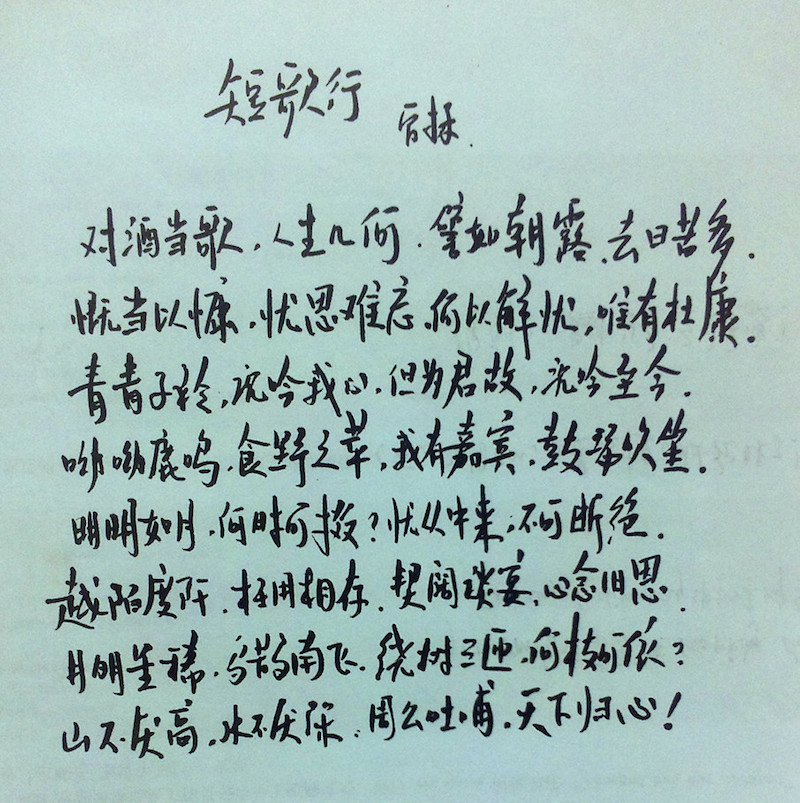 短歌行 曹操.
对酒当歌，人生几何．譬如朝露，去日苦多．
慨当以慷，忧思难忘，何以解忧，唯有杜康．
青青子衿，沉吟我心，但为君故，沉吟至今．
呦呦鹿鸣，食野之苹，我有嘉宾，鼓瑟吹笙．
明明如月，何时可掇？忧从中来，不可断绝．
越陌度阡，枉用相存．契阔谈宴，心念旧恩．
月明星稀，乌鹊南飞．绕树三匝，何枝可依？
山不厌高，水不厌深．周公吐哺，天下归心！